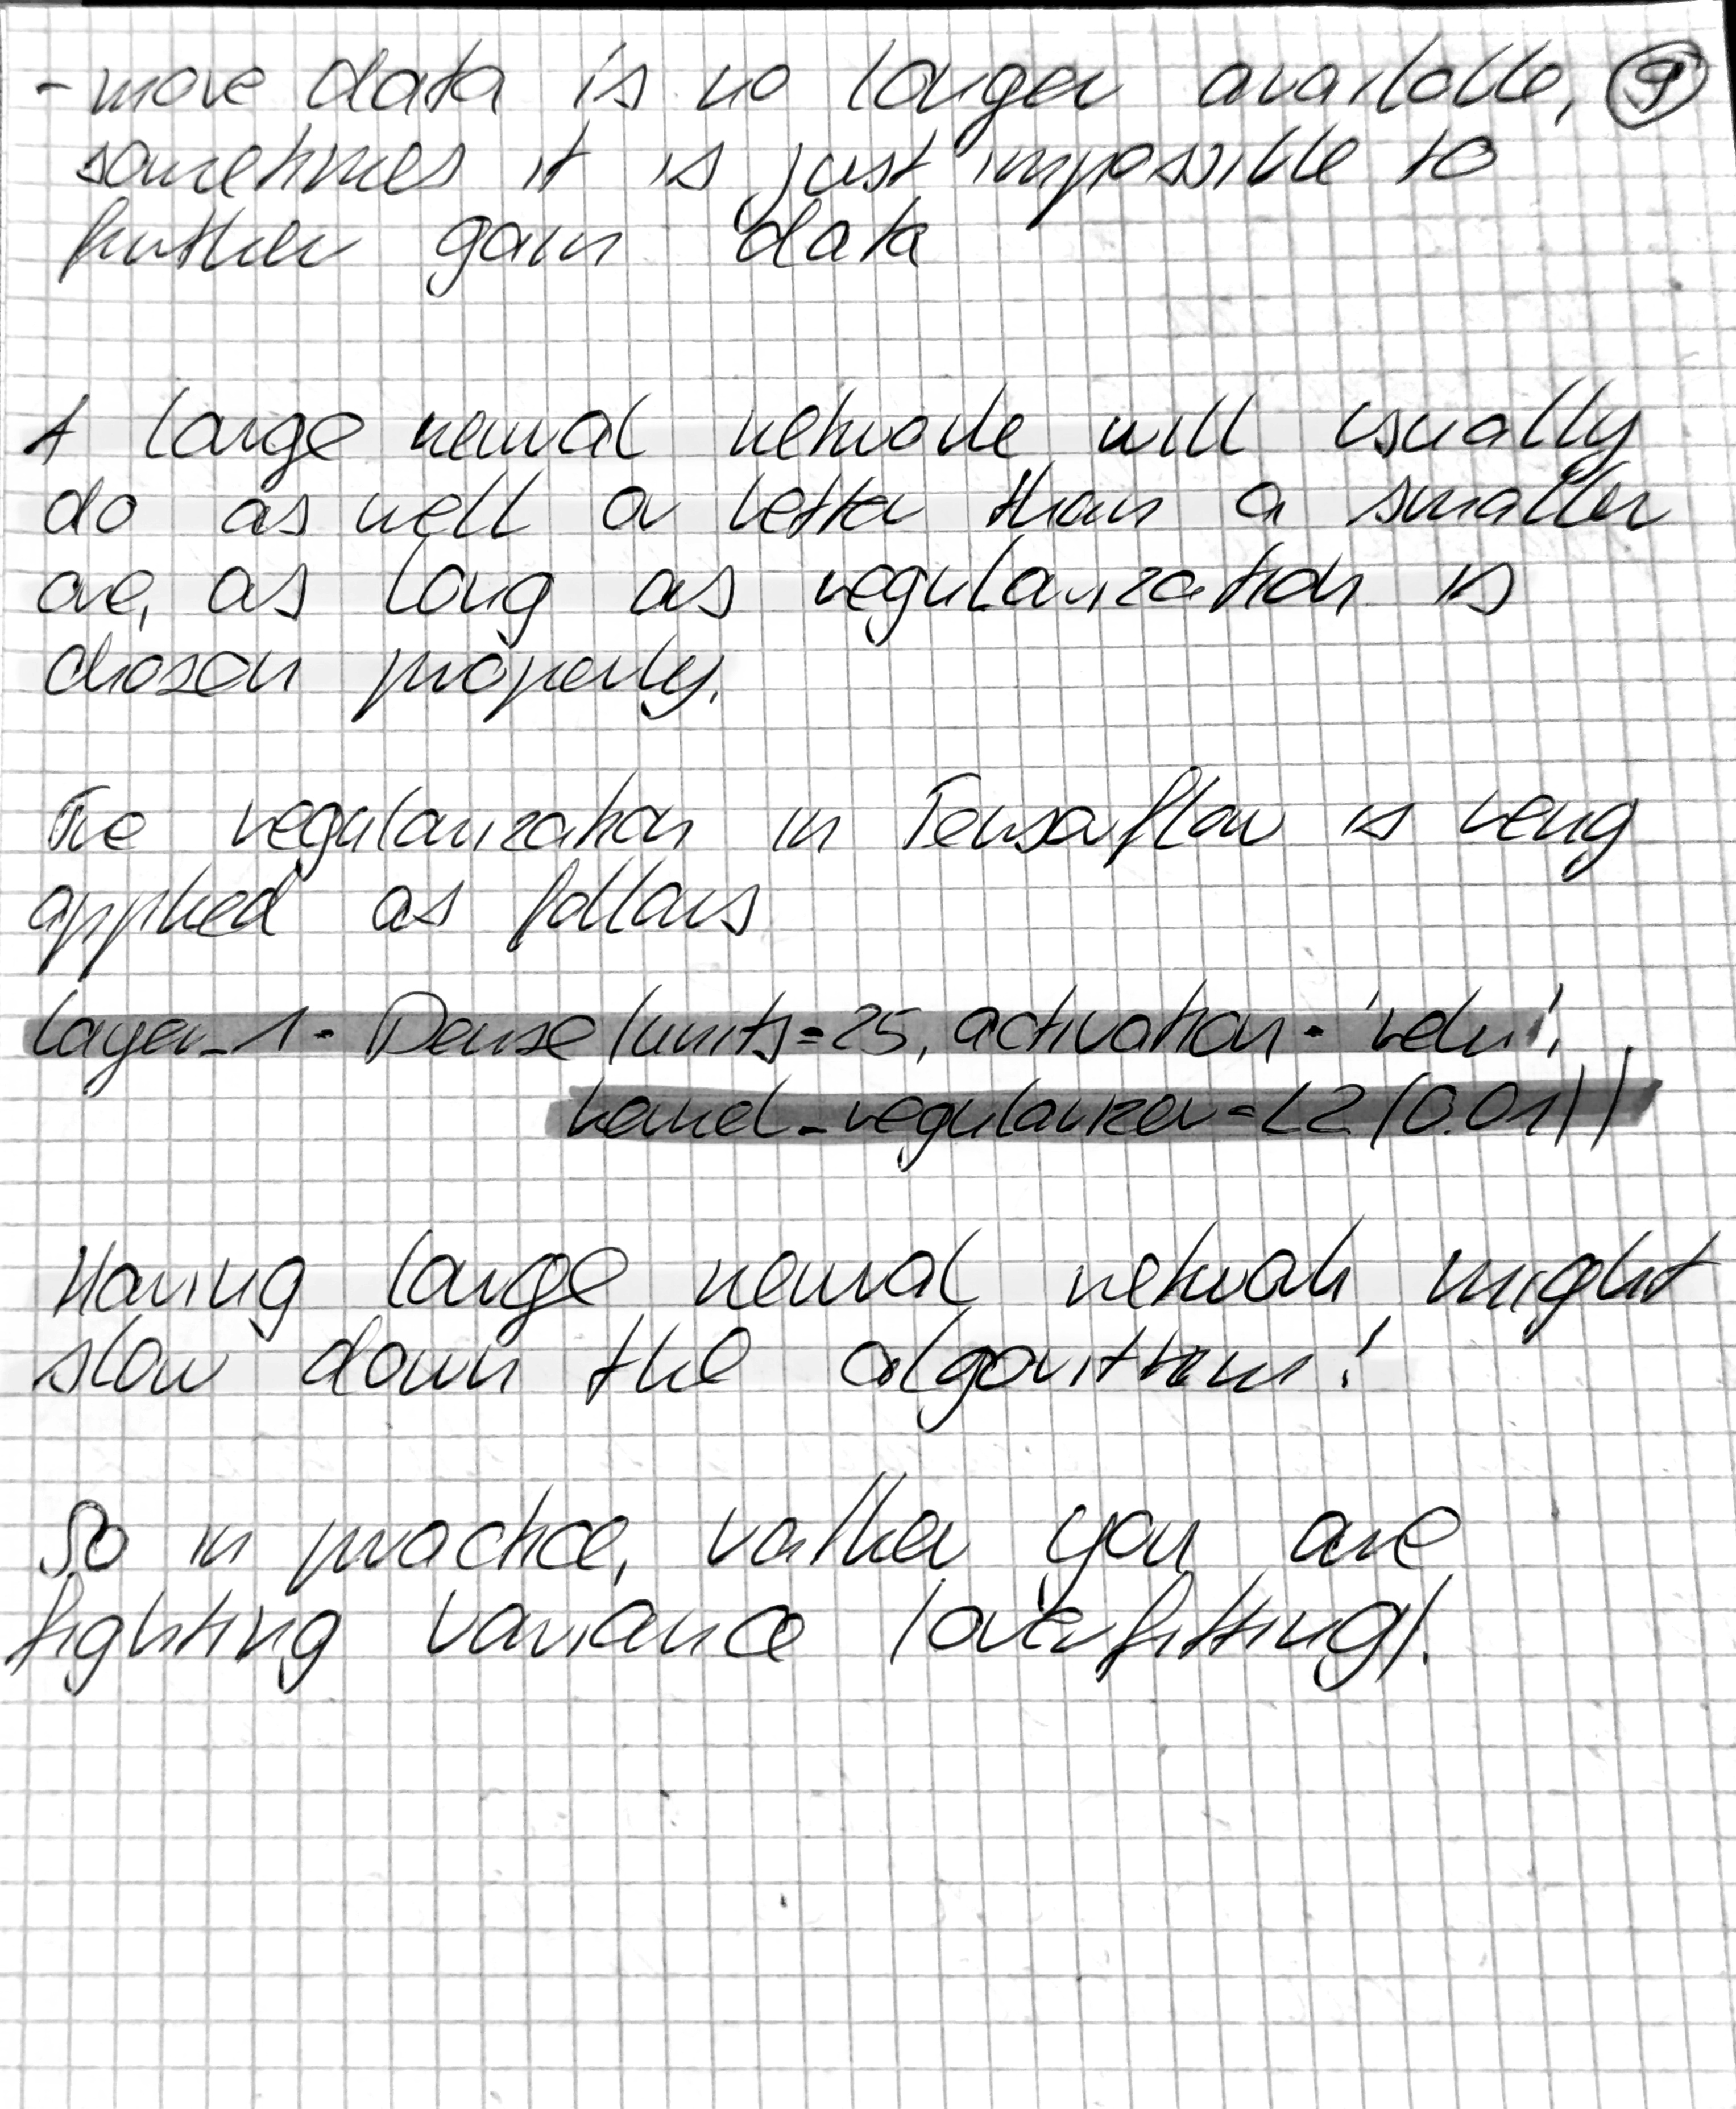 - more data is no longer available, 9
sometimes it is just impossible to
further gain data
A large neural network will usually
do as well or better than a smaller
one, as long as regularization is
chosen properly.
The regularization in Tensorflow is being
applied as follows
layer_1 = Dense(units=25, activation='relu',
kernel_regularizer=L2(0.01))
Having large neural network might
slow down the algorithm!
So in practice, rather you are
fighting variance (overfitting).